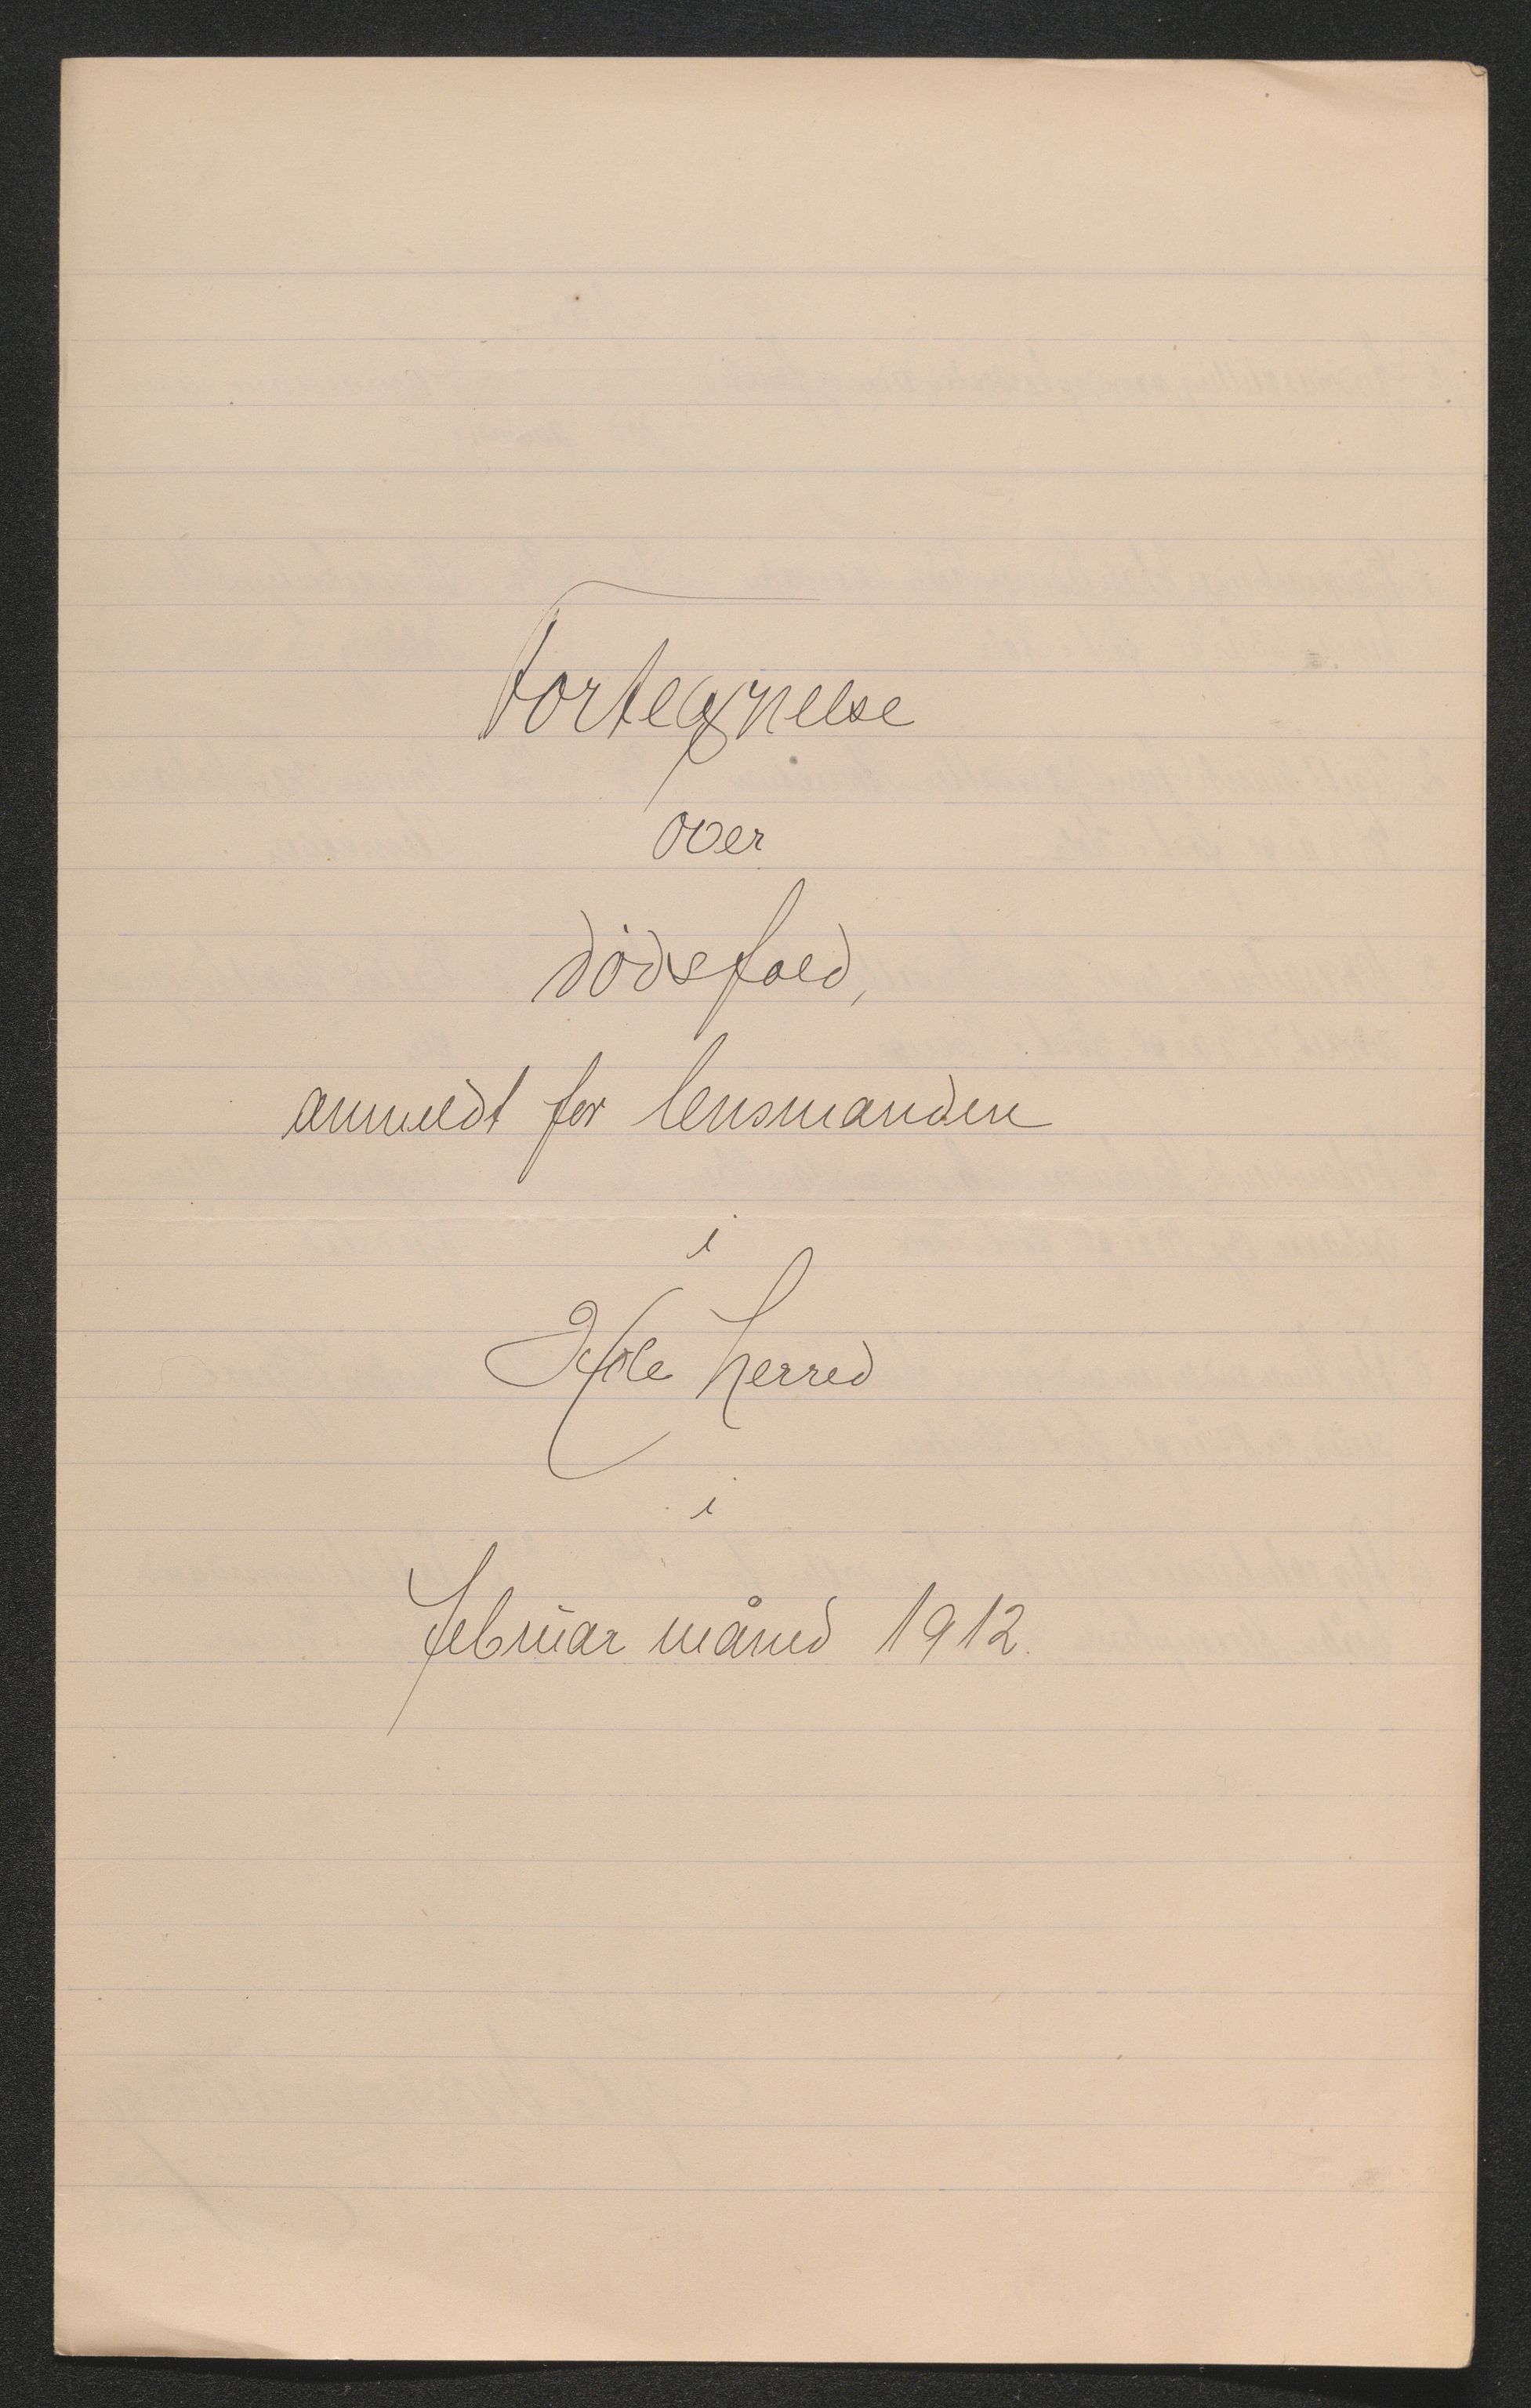 Fortegnelse
over
dødsfald,
anmeldt for lensmanden
i
Hole herred
i
februar måned 1912.